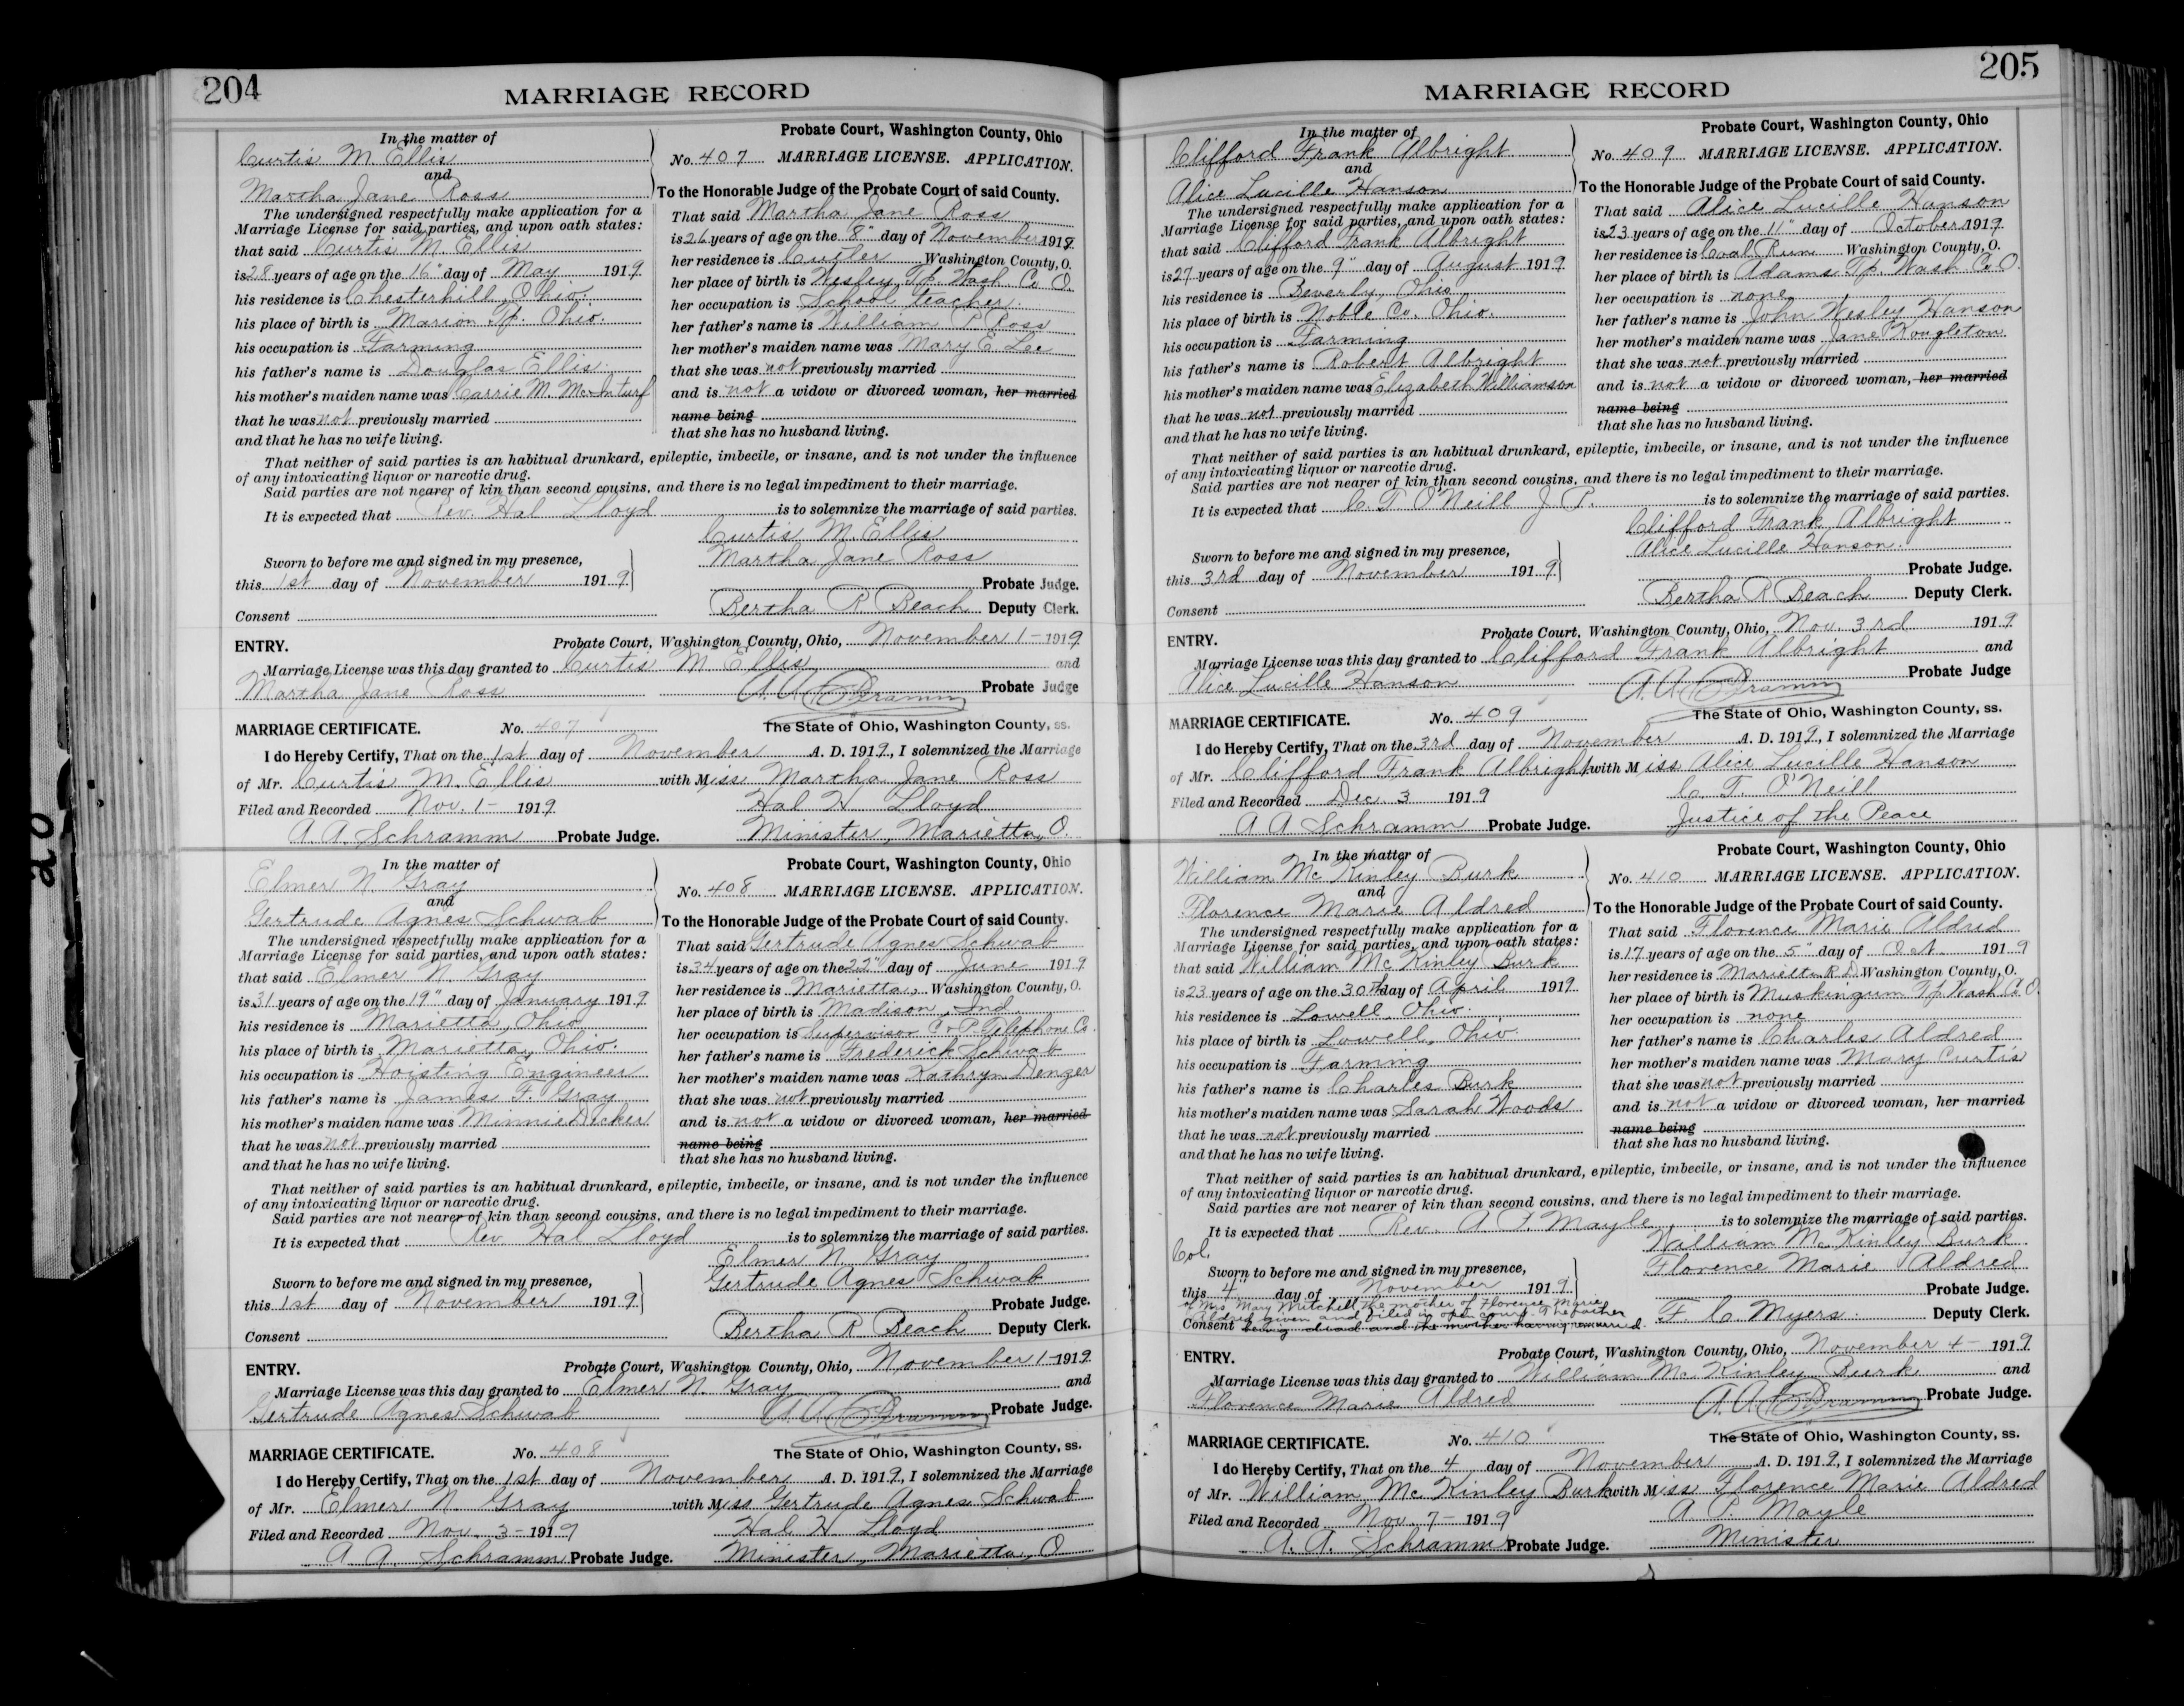 204
MARRIAGE RECORD
In the matter of
Curtis M. Ellis
and
Martha Jane Ross
The undersigned respectfully make application for a
Marriage License for said parties, and upon oath states:
that said Curtis M. Ellis
is 28 years of age on the 16" day of May 1919
his residence is Chesterhill, Ohio.
his place of birth is Marion Tp. Ohio.
his occupation is Farming
his father's name is Douglas Ellis
his mother's maiden name was Carrie M. McInturf
that he was not previously married
and that he has no wife living.
Probate Court, Washington County, Ohio
No. 407 MARRIAGE LICENSE. APPLICATION.
To the Honorable Judge of the Probate Court of said County.
That said Martha Jane Ross
is 26 years of age on the 8" day of November 1918.
her residence is Cutler Washington County, O.
her place of birth is Wesley Tp. Wash. Co. O.
her occupation is School teacher.
her father's name is William P. Ross
her mother's maiden name was Mary E. Lee
that she was not previously married
and is not a widow or divorced woman, her married
name being
that she has no husband living.
That neither of said parties is an habitual drunkard, epileptic, imbecile, or insane, and is not under the influence
of any intoxicating liquor or narcotic drug.
Said parties are not nearer of kin than second cousins, and there is no legal impediment to their marriage.
It is expected that Rev. Hal Lloyd is to solemnize the marriage of said parties.
Curtis M. Ellis
Martha Jane Ross
Sworn to before me and signed in my presence,
this 1st day of November 1919
Probate Judge.
Consent
Bertha R Beach Deputy Clerk.
ENTRY. Probate Court, Washington County, Ohio, November 1 - 1919
Marriage License was this day granted to Curtis M. Ellis and
Martha Jane Ross A. A. Schramm Probate Judge
MARRIAGE CERTIFICATE. No. 407 The State of Ohio, Washington County, ss.
I do Hereby Certify, That on the 1st day of November A. D. 1919, I solemnized the Marriage
of Mr. Curtis M. Ellis with Miss Martha Jane Ross
Filed and Recorded Nov. 1 - 1919. Hal H. Lloyd
A. A. Schramm Probate Judge. Minister, Marietta, O.
In the matter of
Elmer N. Gray
and
Gertrude Agnes Schwab
The undersigned respectfully make application for a
Marriage License for said parties, and upon oath states:
that said Elmer N. Gray
is 31 years of age on the 19" day of January 1919
his residence is Marietta, Ohio
his place of birth is Marietta, Ohio.
his occupation is Hoisting Engineer
his father's name is James F. Gray
his mother's maiden name was Minnie Decker
that he was not previously married
and that he has no wife living.
Probate Court, Washington County, Ohio
No. 408 MARRIAGE LICENSE. APPLICATION.
To the Honorable Judge of the Probate Court of said County.
That said Gertrude Agnes Schwab
is 34 years of age on the 22" day of June 1919
her residence is Marietta, Washington County, O.
her place of birth is Madison, Ind.
her occupation is Supervisor C. & P. Telephone Co.
her father's name is Frederick Schwab
her mother's maiden name was Kathryn Denger
that she was not previously married
and is not a widow or divorced woman, her married
name being
that she has no husband living.
That neither of said parties is an habitual drunkard, epileptic, imbecile, or insane, and is not under the influence
of any intoxicating liquor or narcotic drug.
Said parties are not nearer of kin than second cousins, and there is no legal impediment to their marriage.
It is expected that Rev Hal Lloyd is to solemnize the marriage of said parties.
Elmer N. Gray
Gertrude Agnes Schwab
Sworn to before me and signed in my presence,
this 1st day of November 1919
Probate Judge.
Consent
Bertha R Beach Deputy Clerk.
ENTRY. Probate Court, Washington County, Ohio, November 1 - 1919
Marriage License was this day granted to Elmer N. Gray and
Gertrude Agnes Schwab A. A. Schramm Probate Judge.
MARRIAGE CERTIFICATE. No. 408 The State of Ohio, Washington County, ss.
I do Hereby Certify, That on the 1st day of November A. D. 1919, I solemnized the Marriage
of Mr. Elmer N. Gray with Miss Gertrude Agnes Schwab
Filed and Recorded Nov. 3 - 1919 Hal H Lloyd
A. A. Schramm Probate Judge. Minister, Marietta, O
205
MARRIAGE RECORD
In the matter of
Clifford Frank Albright
and
Alice Lucille Hanson
The undersigned respectfully make application for a
Marriage License for said parties, and upon oath states:
that said Clifford Frank Albright
is 27 years of age on the 9" day of August 1919
his residence is Beverly, Ohio
his place of birth is Noble Co. Ohio.
his occupation is Farming
his father's name is Robert Albright
his mother's maiden name was Elizabeth Williamson
that he was not previously married
and that he has no wife living.
Probate Court, Washington County, Ohio
No. 409 MARRIAGE LICENSE. APPLICATION.
To the Honorable Judge of the Probate Court of said County.
That said Alice Lucille Hanson
is 23 years of age on the 11" day of October 1919
her residence is Coal Run Washington County, O.
her place of birth is Adams Tp. Wash. Co O.
her occupation is none
her father's name is John Wesley Hanson
her mother's maiden name was Jane
that she was not previously married
and is not a widow or divorced woman, her married
name being
that she has no husband living.
That neither of said parties is an habitual drunkard, epileptic, imbecile, or insane, and is not under the influence
of any intoxicating liquor or narcotic drug.
Said parties are not nearer of kin than second cousins, and there is no legal impediment to their marriage.
It is expected that C. T. O'Neill J. P. is to solemnize the marriage of said parties.
Clifford Frank Albright
Alice Lucille Hanson.
Sworn to before me and signed in my presence,
this 3rd day of November 1919
Probate Judge.
Consent
Bertha R Beach Deputy Clerk.
ENTRY. Probate Court, Washington County, Ohio, Nov. 3rd 1919
Marriage License was this day granted to Clifford Frank Albright and
Alice Lucille Hanson A. A. Schramm Probate Judge
MARRIAGE CERTIFICATE. No. 409 The State of Ohio, Washington County, ss.
I do Hereby Certify, That on the 3rd day of November A. D. 1919, I solemnized the Marriage
of Mr. Clifford Frank Albright with Miss Alice Lucille Hanson
Filed and Recorded Dec. 3 1919 C. T. O'Neill
A A Schramm Probate Judge. Justice of the Peace
In the matter of
William Mc Kinley Burk
and
Florence Marie Aldred
The undersigned respectfully make application for a
Marriage License for said parties, and upon oath states:
that said William Mc Kinley Burk
is 23 years of age on the 30th day of April 1919
his residence is Lowell, Ohio.
his place of birth is Lowell, Ohio.
his occupation is Farming
his father's name is Charles Burk
his mother's maiden name was Sarah Woods
that he was not previously married
and that he has no wife living.
Probate Court, Washington County, Ohio
No. 410 MARRIAGE LICENSE. APPLICATION.
To the Honorable Judge of the Probate Court of said County.
That said Florence Marie Aldred
is 17 years of age on the 5" day of Oct. 1919
her residence is Marietta R. D. Washington County, O.
her place of birth is Muskingum Tp. Wash. Co. O.
her occupation is none
her father's name is Charles Aldred
her mother's maiden name was Mary Curtis
that she was not previously married
and is not a widow or divorced woman, her married
name being
that she has no husband living.
That neither of said parties is an habitual drunkard, epileptic, imbecile, or insane, and is not under the influence
of any intoxicating liquor or narcotic drug.
Said parties are not nearer of kin than second cousins, and there is no legal impediment to their marriage.
It is expected that Rev. A. P. Mayle is to solemnize the marriage of said parties.
Col.
William Mc Kinley Burk
Florence Marie Aldred
Sworn to before me and signed in my presence,
this 4" day of November 1919
Probate Judge.
of Mrs. Mary Mitchell, the mother of Florence Marie
Aldred given and filed in open court. The father
Consent being dead and the mother having remarried.
F. C. Myers Deputy Clerk.
ENTRY. Probate Court, Washington County, Ohio, November 4 - 1919
Marriage License was this day granted to William Mc Kinley Burk and
Florence Marie Aldred A. A. Schramm Probate Judge.
MARRIAGE CERTIFICATE. No. 410 The State of Ohio, Washington County, ss.
I do Hereby Certify, That on the 4 day of November A. D. 1919, I solemnized the Marriage
of Mr. William Mc Kinley Burk with Miss Florence Marie Aldred
Filed and Recorded Nov. 7 - 1919 A. P. Mayle
A. A. Schramm Probate Judge. Minister